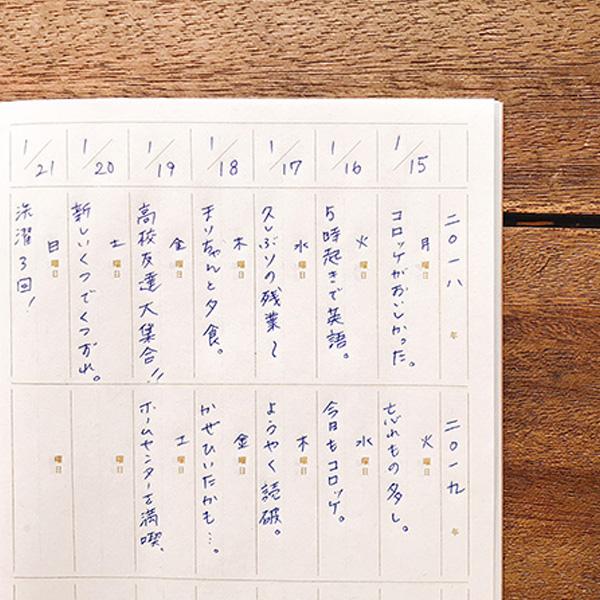 1/15
1/16
1/17
1/18
1/19
1/20
1/21
二〇一八年
月曜日
コロッケがおいしかった。
火曜日
5時起きで英語。
水曜日
久しぶりの残業〜
木曜日
まりちゃんと夕食。
金曜日
高校友達大集合!!
土曜日
新しいくつでくつずれ。
日曜日
洗濯3回!
二〇一九年
火曜日
忘れもの多し。
水曜日
今日もコロッケ。
木曜日
ようやく読破。
金曜日
かぜひいたかも…。
土曜日
ホームセンターを満喫。
曜日
曜日